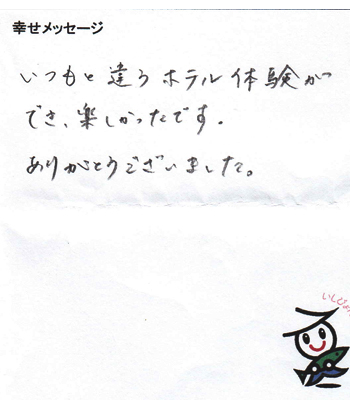 幸せメッセージ
いつもと違うホテル体験が
でき、楽しかったです。
ありがとうございました。